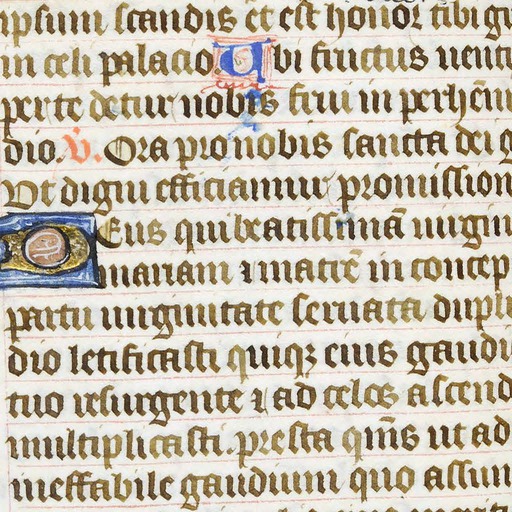 ipsum scandis et est honor tibi gr
in celi palacio Ubi fructus uent
per te detur nobis frui in perhēn
dio. V. Ora pro nobis sancta dei g
Ut digni efficiamur promission
Deus qui beatissimā uirgin
mariam ⁊ matrē in concep
partu uirginitate seruata dupli
dio letificasti quiqꝫ eius gaudi
tuo resurgente ⁊ ad celos ascend
multiplicasti. presta qm̄s ut ad
ineffabile gaudium quo assum